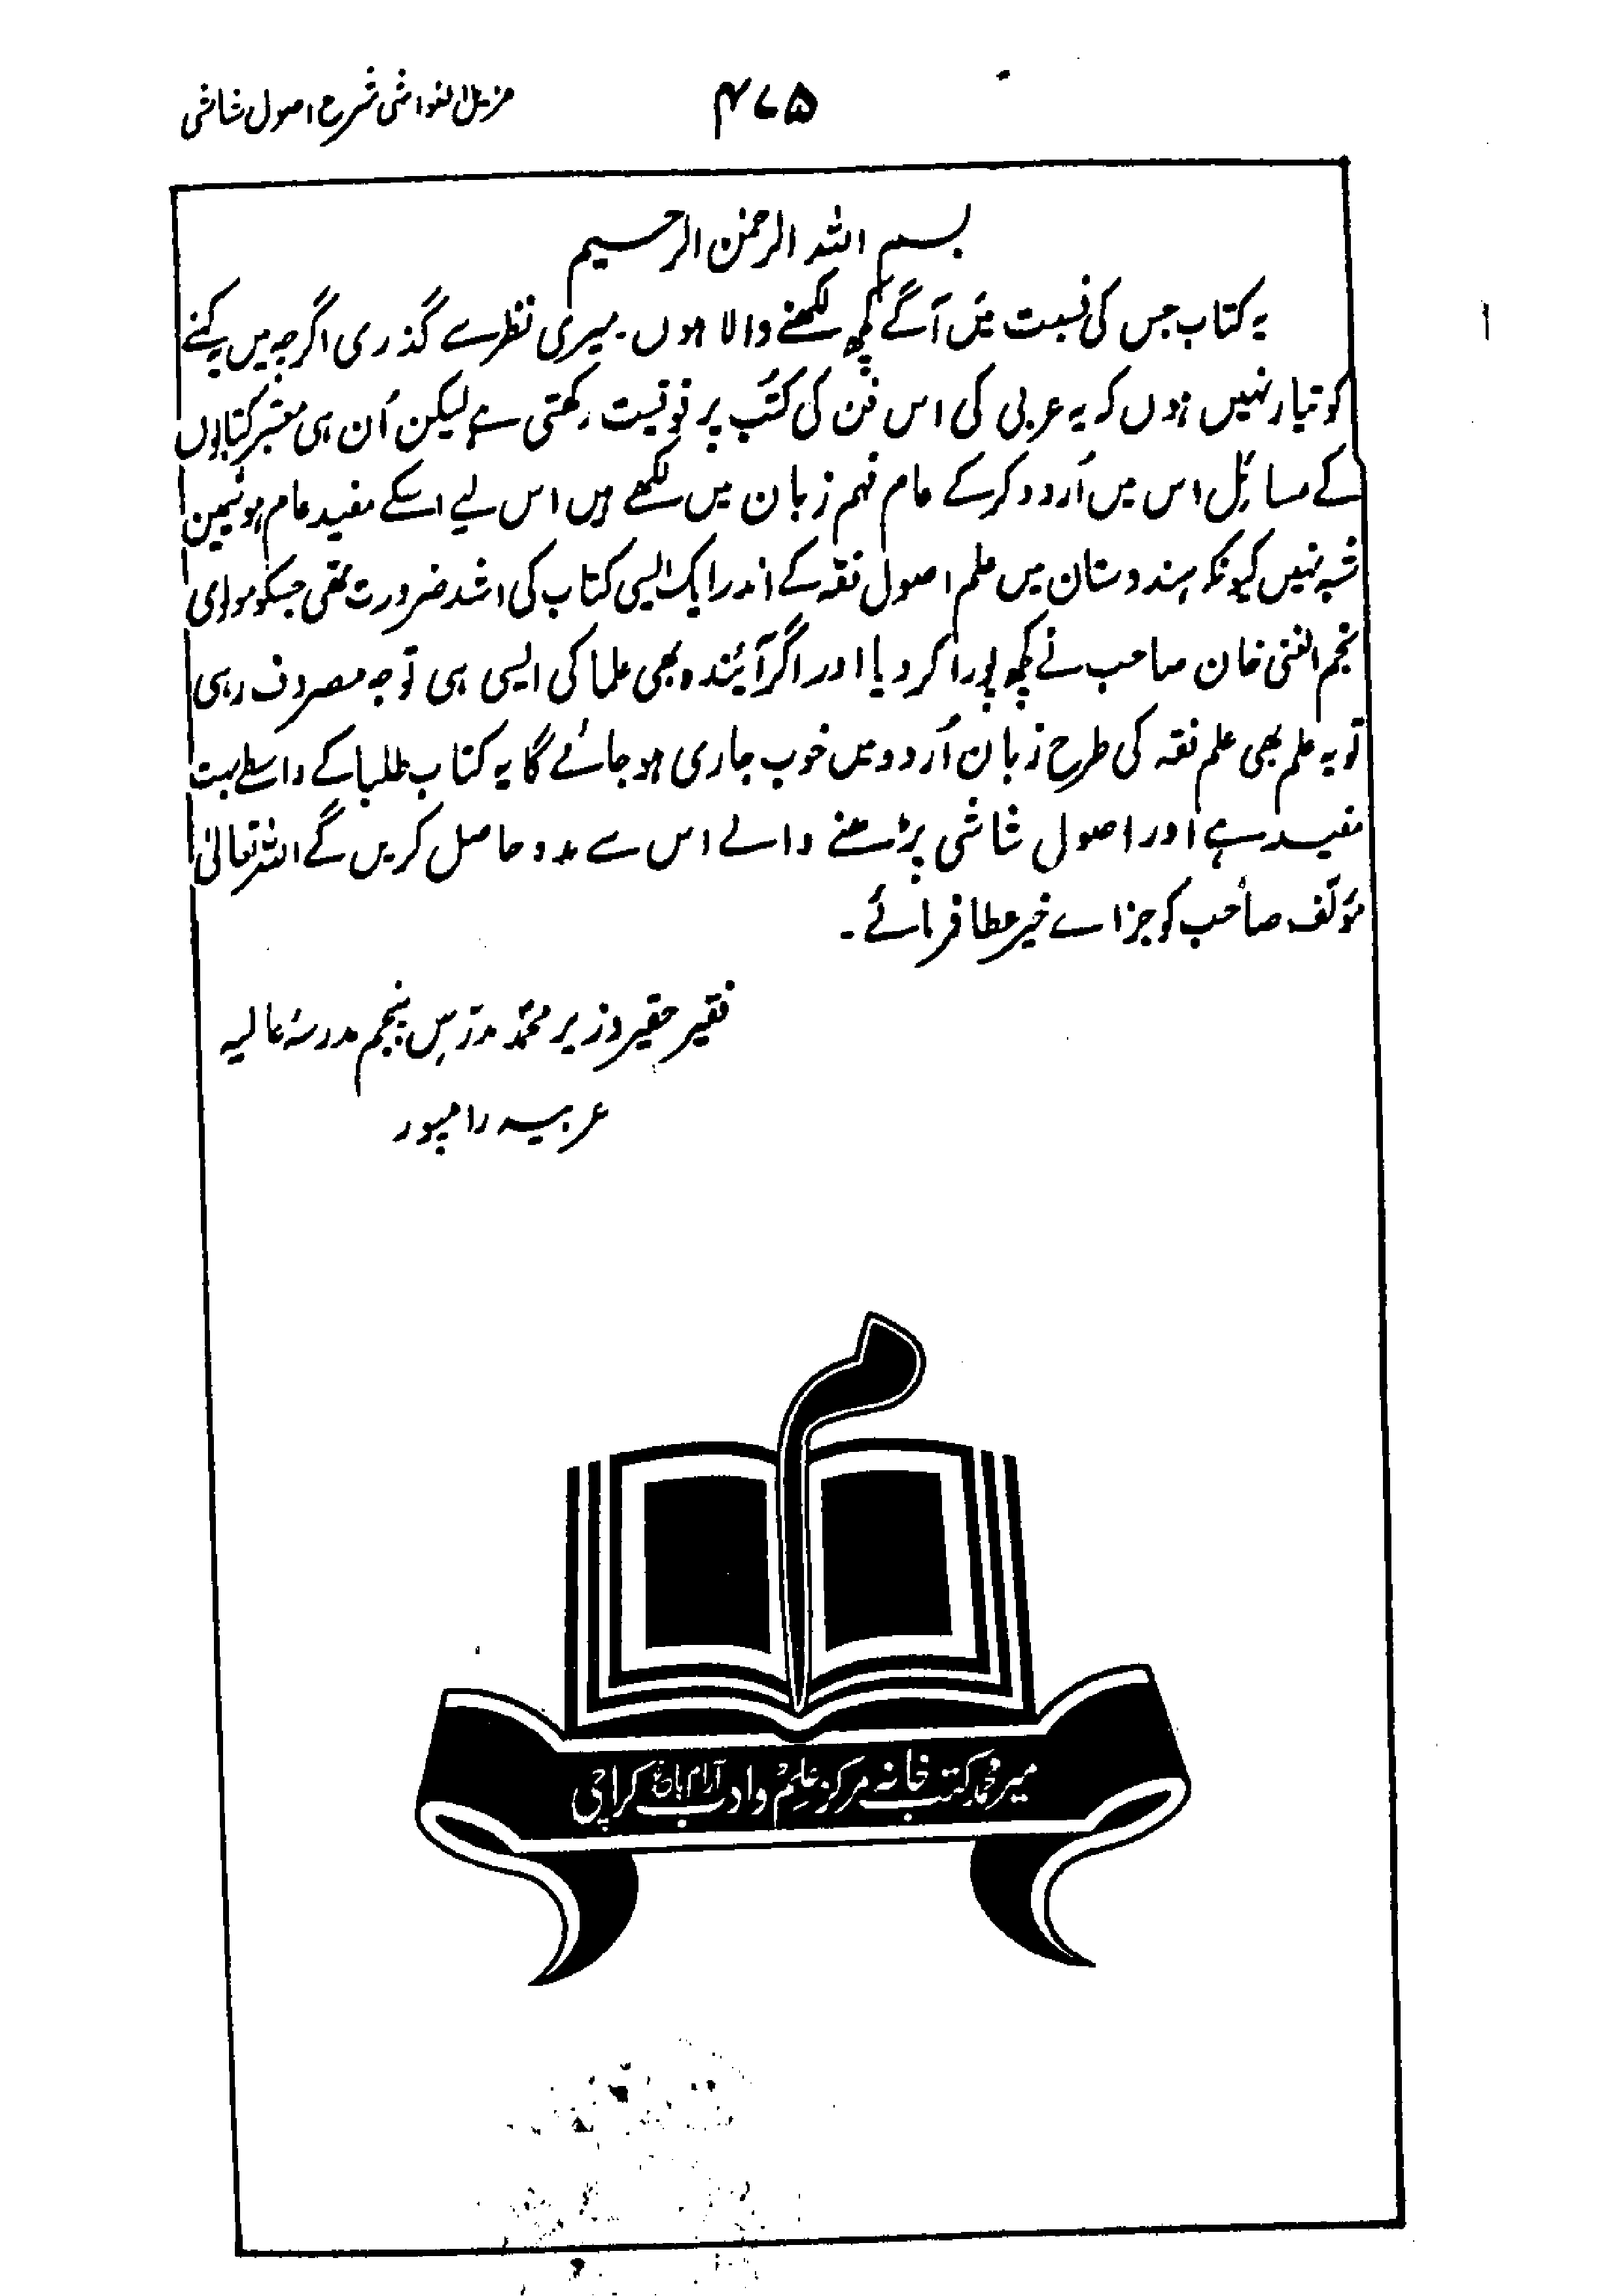 ۴۷۵
مزیل الغواشی شرح اصول شاشی
بسم الله الرحمن الرحیم
یہ کتاب جس کی نسبت میں آگے کچھ لکھنے والا ہوں۔ میری نظر سے گذری اگرچہ میں یہ کہنے
کو تیار نہیں ہوں کہ یہ عربی کی اس فن کی کتب پر فوقیت رکھتی ہے لیکن اُن ہی معتبر کتابوں
کے مسائل اس میں اُردو کرکے عام فہم زبان میں لکھے ہیں اس لیے اسکے مفید عام ہونیمین
شبہ نہیں کیونکہ ہندوستان میں علم اصول فقہ کے اندر ایک ایسی کتاب کی اشد ضرورت تھی جسکو مولوی
نجم الغنی خان صاحب نے کچھ پورا کر دیا اور اگر آیندہ بھی علما کی ایسی ہی توجہ مصروف رہی
تو یہ علم بھی علم فقہ کی طرح زبان اُردو میں خوب جاری ہو جائے گا یہ کتاب طلبا کے واسطے بہت
مفید ہے اور اصول شاشی پڑھنے والے اس سے مدد حاصل کریں گے اللہ تعالیٰ
مؤلّف صاحب کو جزاے خیر عطا فرمائے۔
فقیر حقیر وزیر محمّد مدرّس پنجم مدرسۂ عالیہ
عربیہ رامپور
میر محمد کتب خانہ مرکز علم و ادب آرام باغ کراچی